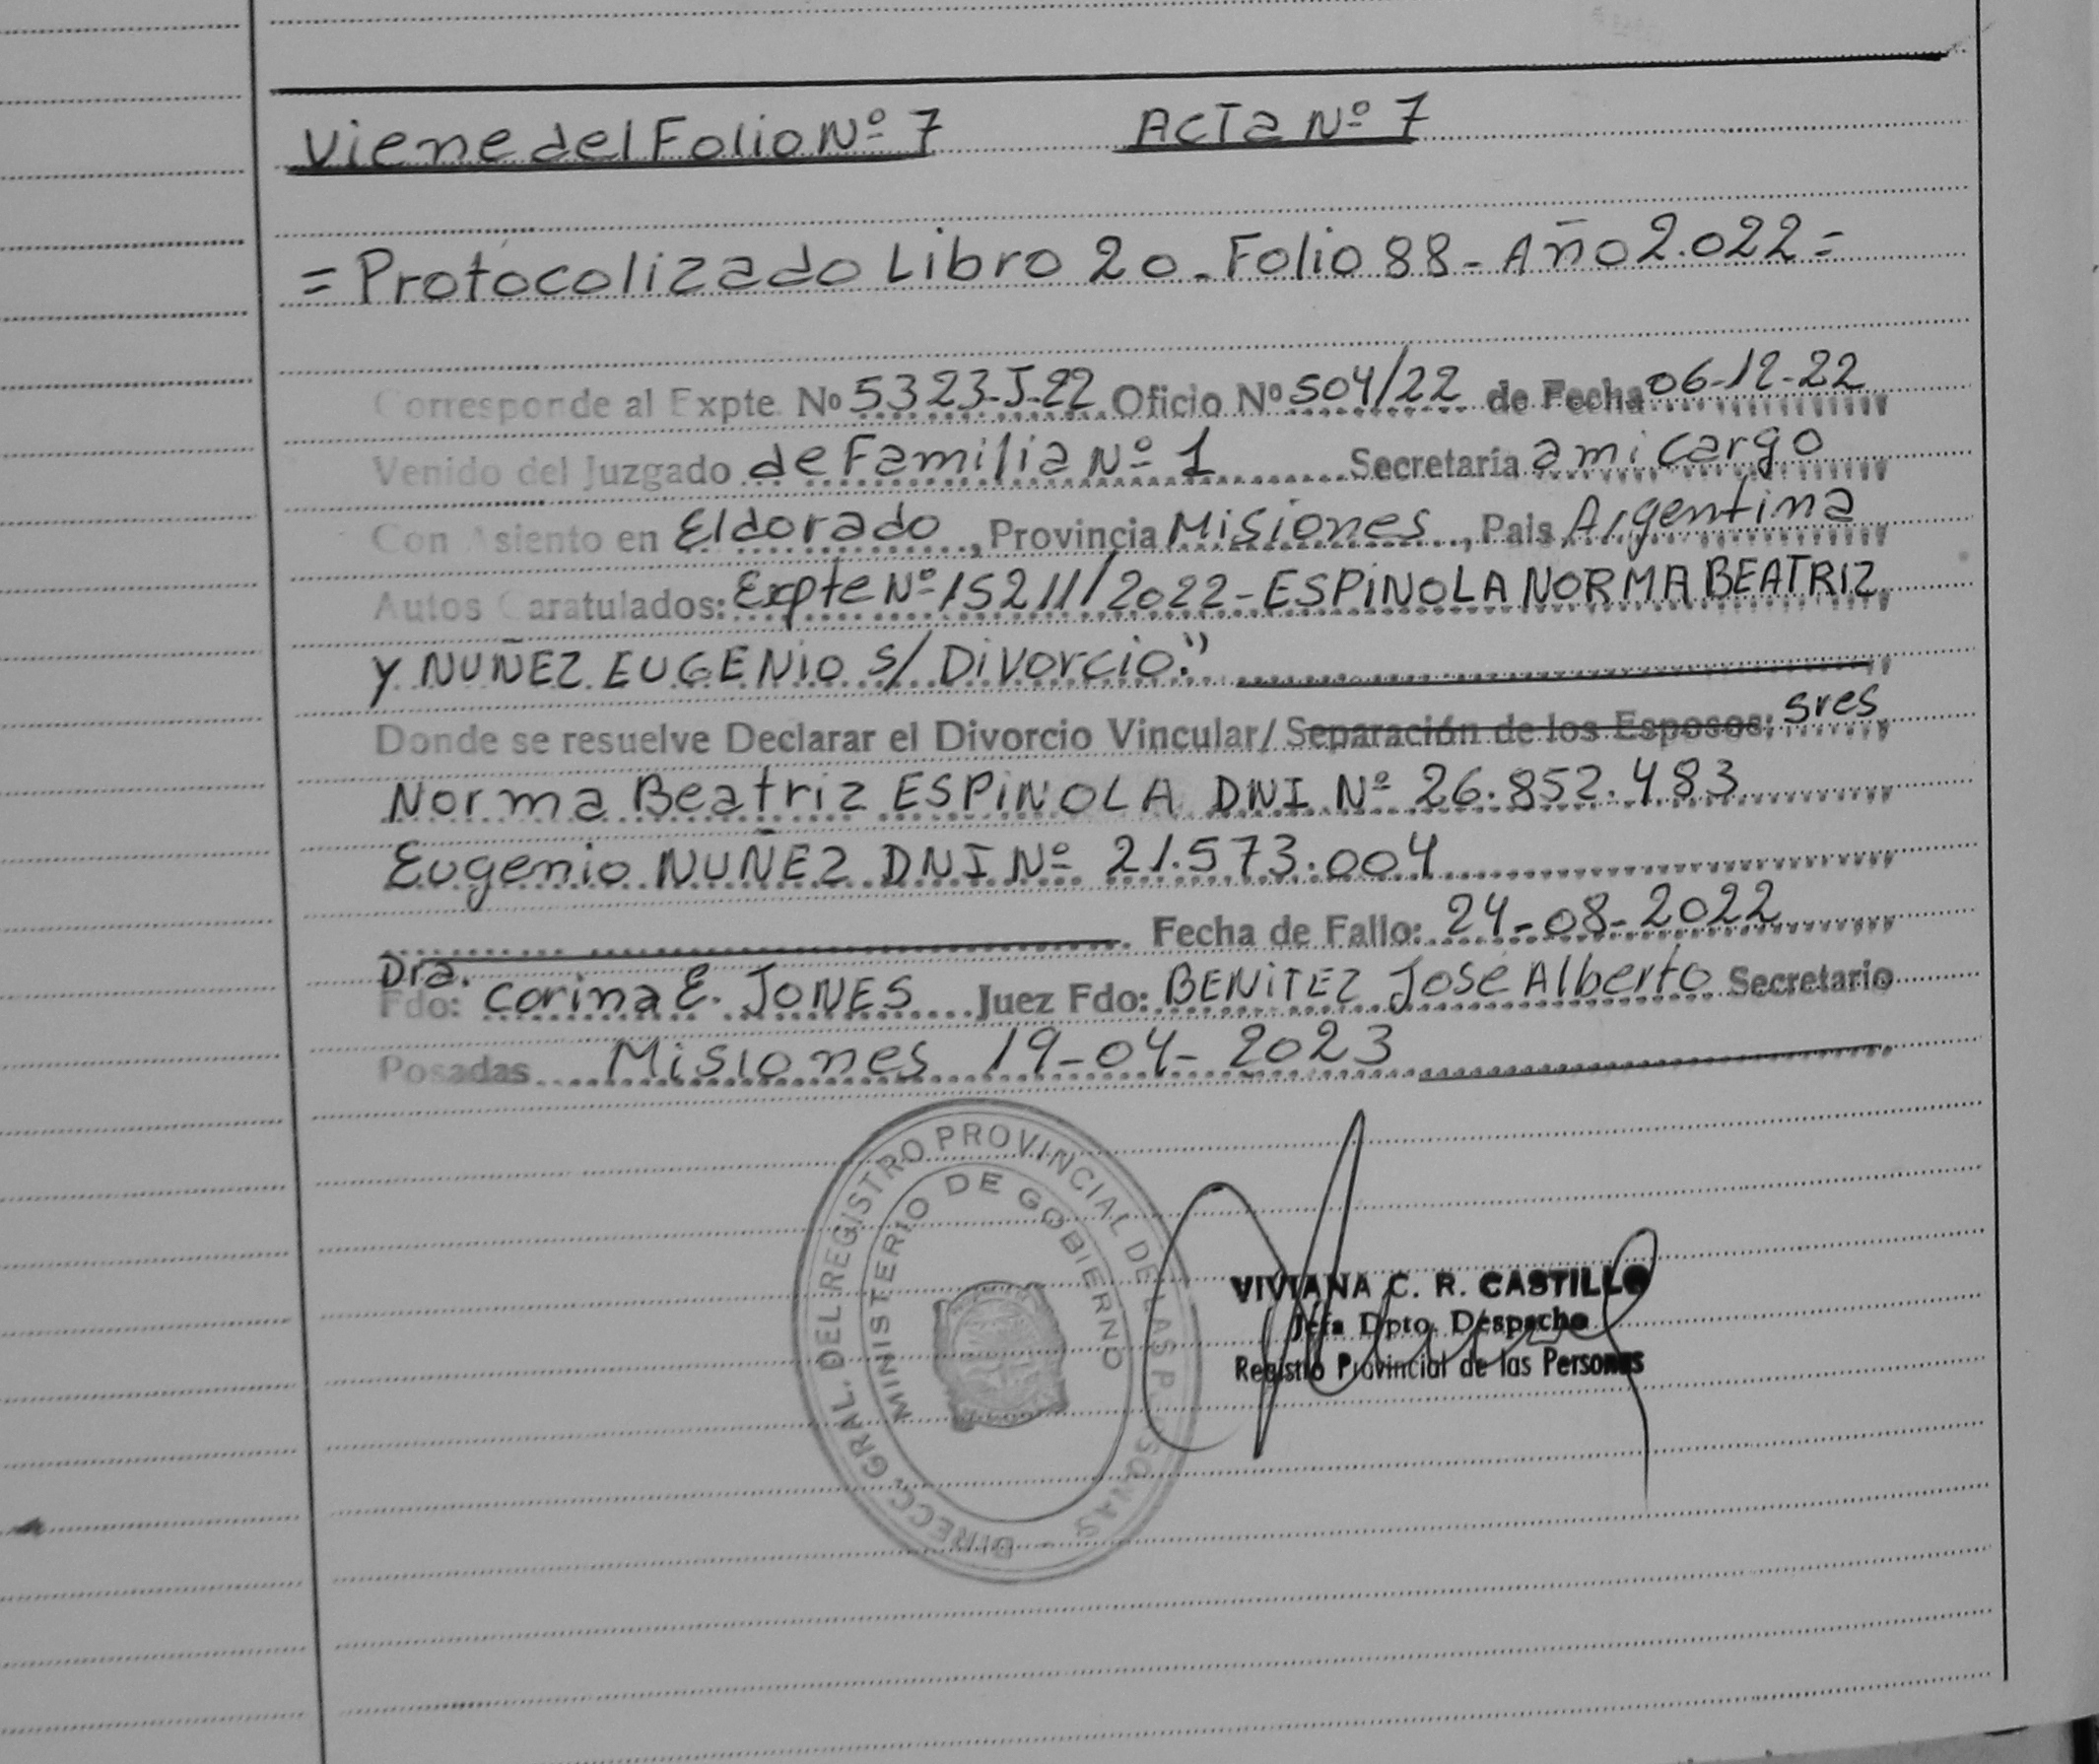 Viene del Folio Nº 7 Acta Nº 7
= Protocolizado Libro 20 - Folio 88 - Año 2.022 =
Corresponde al Expte. Nº 5323-J-22 Oficio Nº 504/22 de Fecha 06-12-22
Venido del Juzgado de Familia Nº 1 Secretaría a mi cargo
Con Asiento en Eldorado, Provincia Misiones, Pais Argentina
Autos Caratulados: Expte Nº 15211/2022 - ESPINOLA NORMA BEATRIZ
Y NUÑEZ EUGENIO s/ Divorcio."
Donde se resuelve Declarar el Divorcio Vincular/ Separación de los Esposos: sres
Norma Beatriz ESPINOLA DNI Nº 26.852.483
Eugenio NUÑEZ DNI Nº 21.573.004
Fecha de Fallo: 24-08-2022
Dra.
Fdo: Corina E. JONES Juez Fdo: BENITEZ José Alberto Secretario
Posadas Misiones 19-04-2023
DIRECC. GRAL. DEL REGISTRO PROVINCIAL DE LAS PERSONAS
MINISTERIO DE GOBIERNO
VIVIANA C. R. CASTILLO
Jefa Dpto. Despacho
Registro Provincial de las Personas